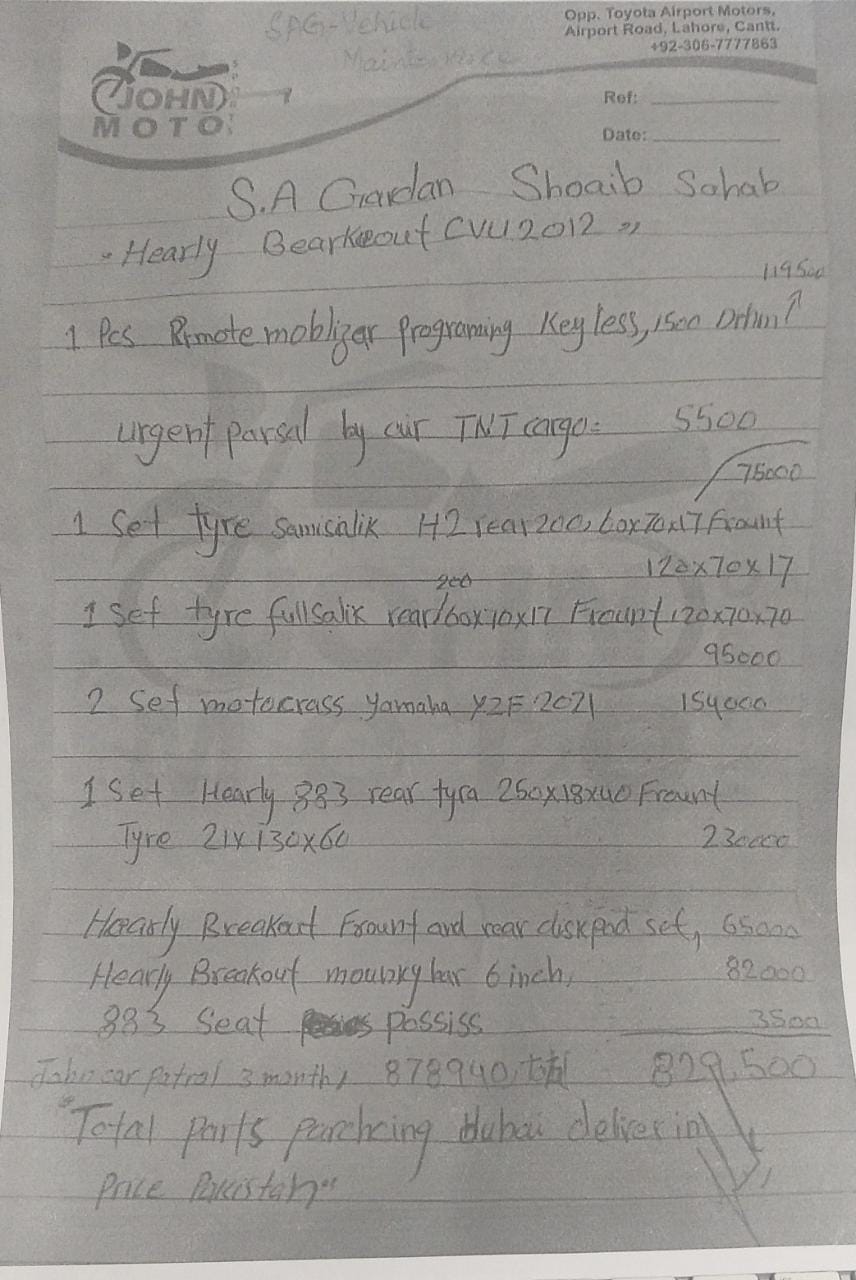 SAG-Vehicle
Maintenance
Opp. Toyota Airport Motors,
Airport Road, Lahore, Cantt.
+92-306-7777863
JOHN
MOTO
Ref:
Date:
S.A Gardan Shoaib Sahab
"Hearly Bearkeout CVU 2012"
119500
1 Pcs Rimote moblizer programing Key less, 1500 Drhm
urgent parsal by air TNT cargo = 5500
75000
1 Set tyre Samisalik H2 rear 200, 60x70x17 Frount
120x70x17
200
1 Set tyre full Salix rear/60x70x17 Frount 120x70x70
95000
2 Set motocrass Yamaha YZF 2021 154000
1 Set Hearly 883 rear tyra 250x18x40 Frount
Tyre 21x130x60 230000
Hearly Breakout Frount and rear disk pad set, 65000
Hearly Breakout mounky bar 6 inch, 82000
883 Seat possiss 3500
John car Patrol 3 month, 878940 total 829,500
"Total parts parchcing dubai deliver in
Price Pakistan"